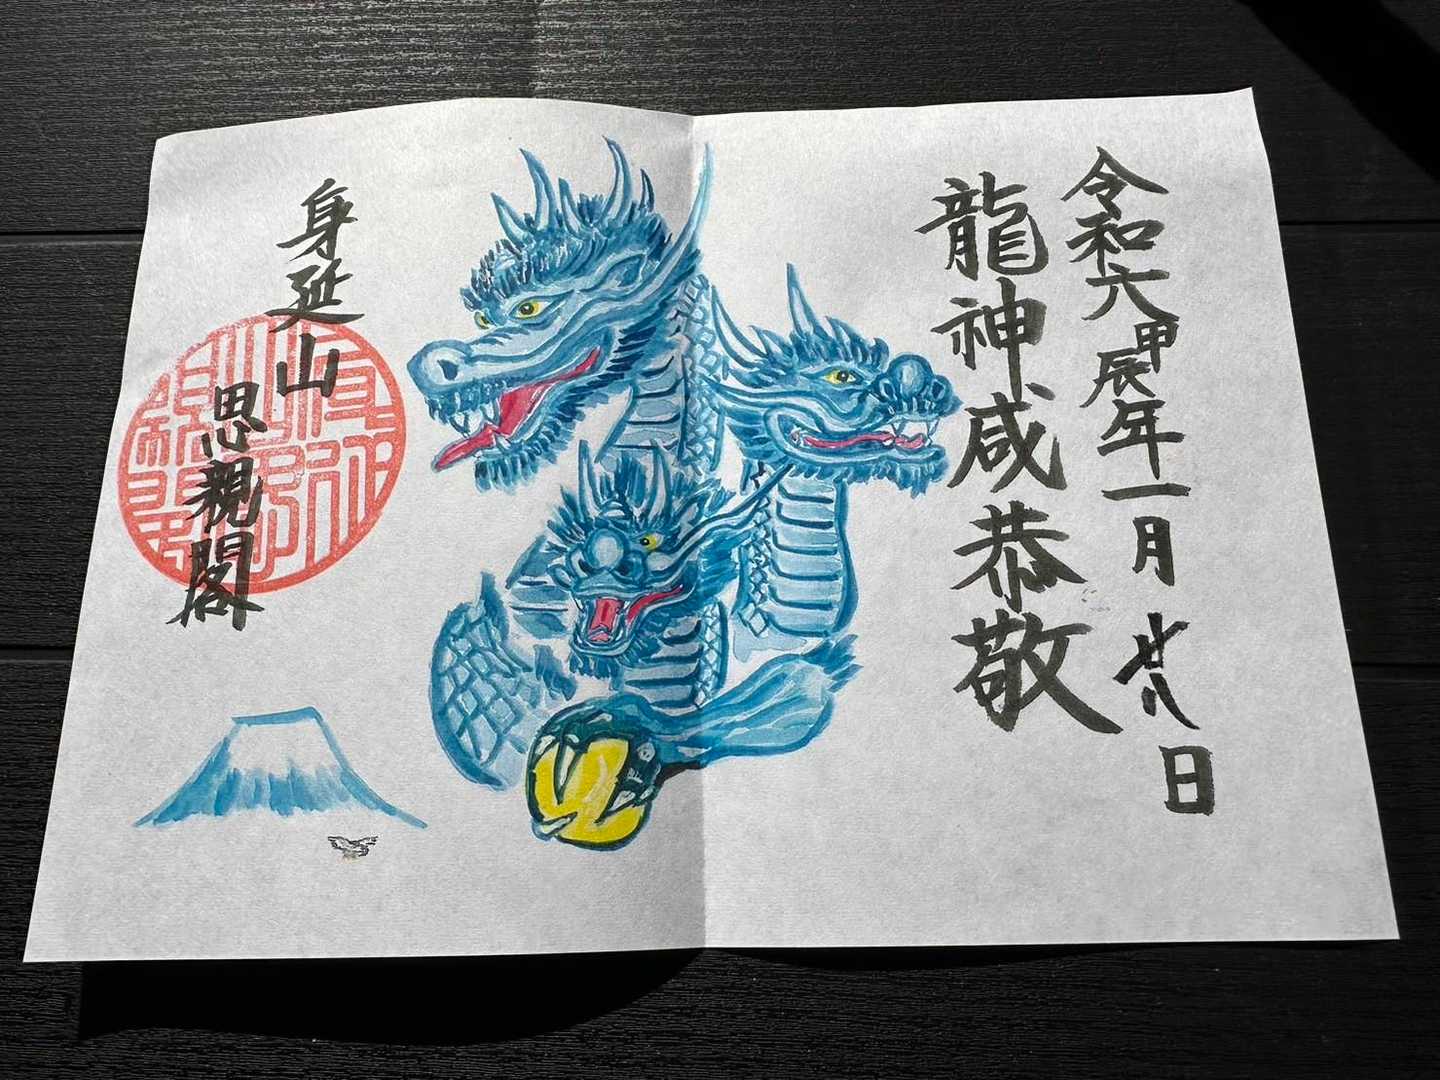 令和六甲辰年一月廿八日
龍神咸恭敬
身延山
思親閣